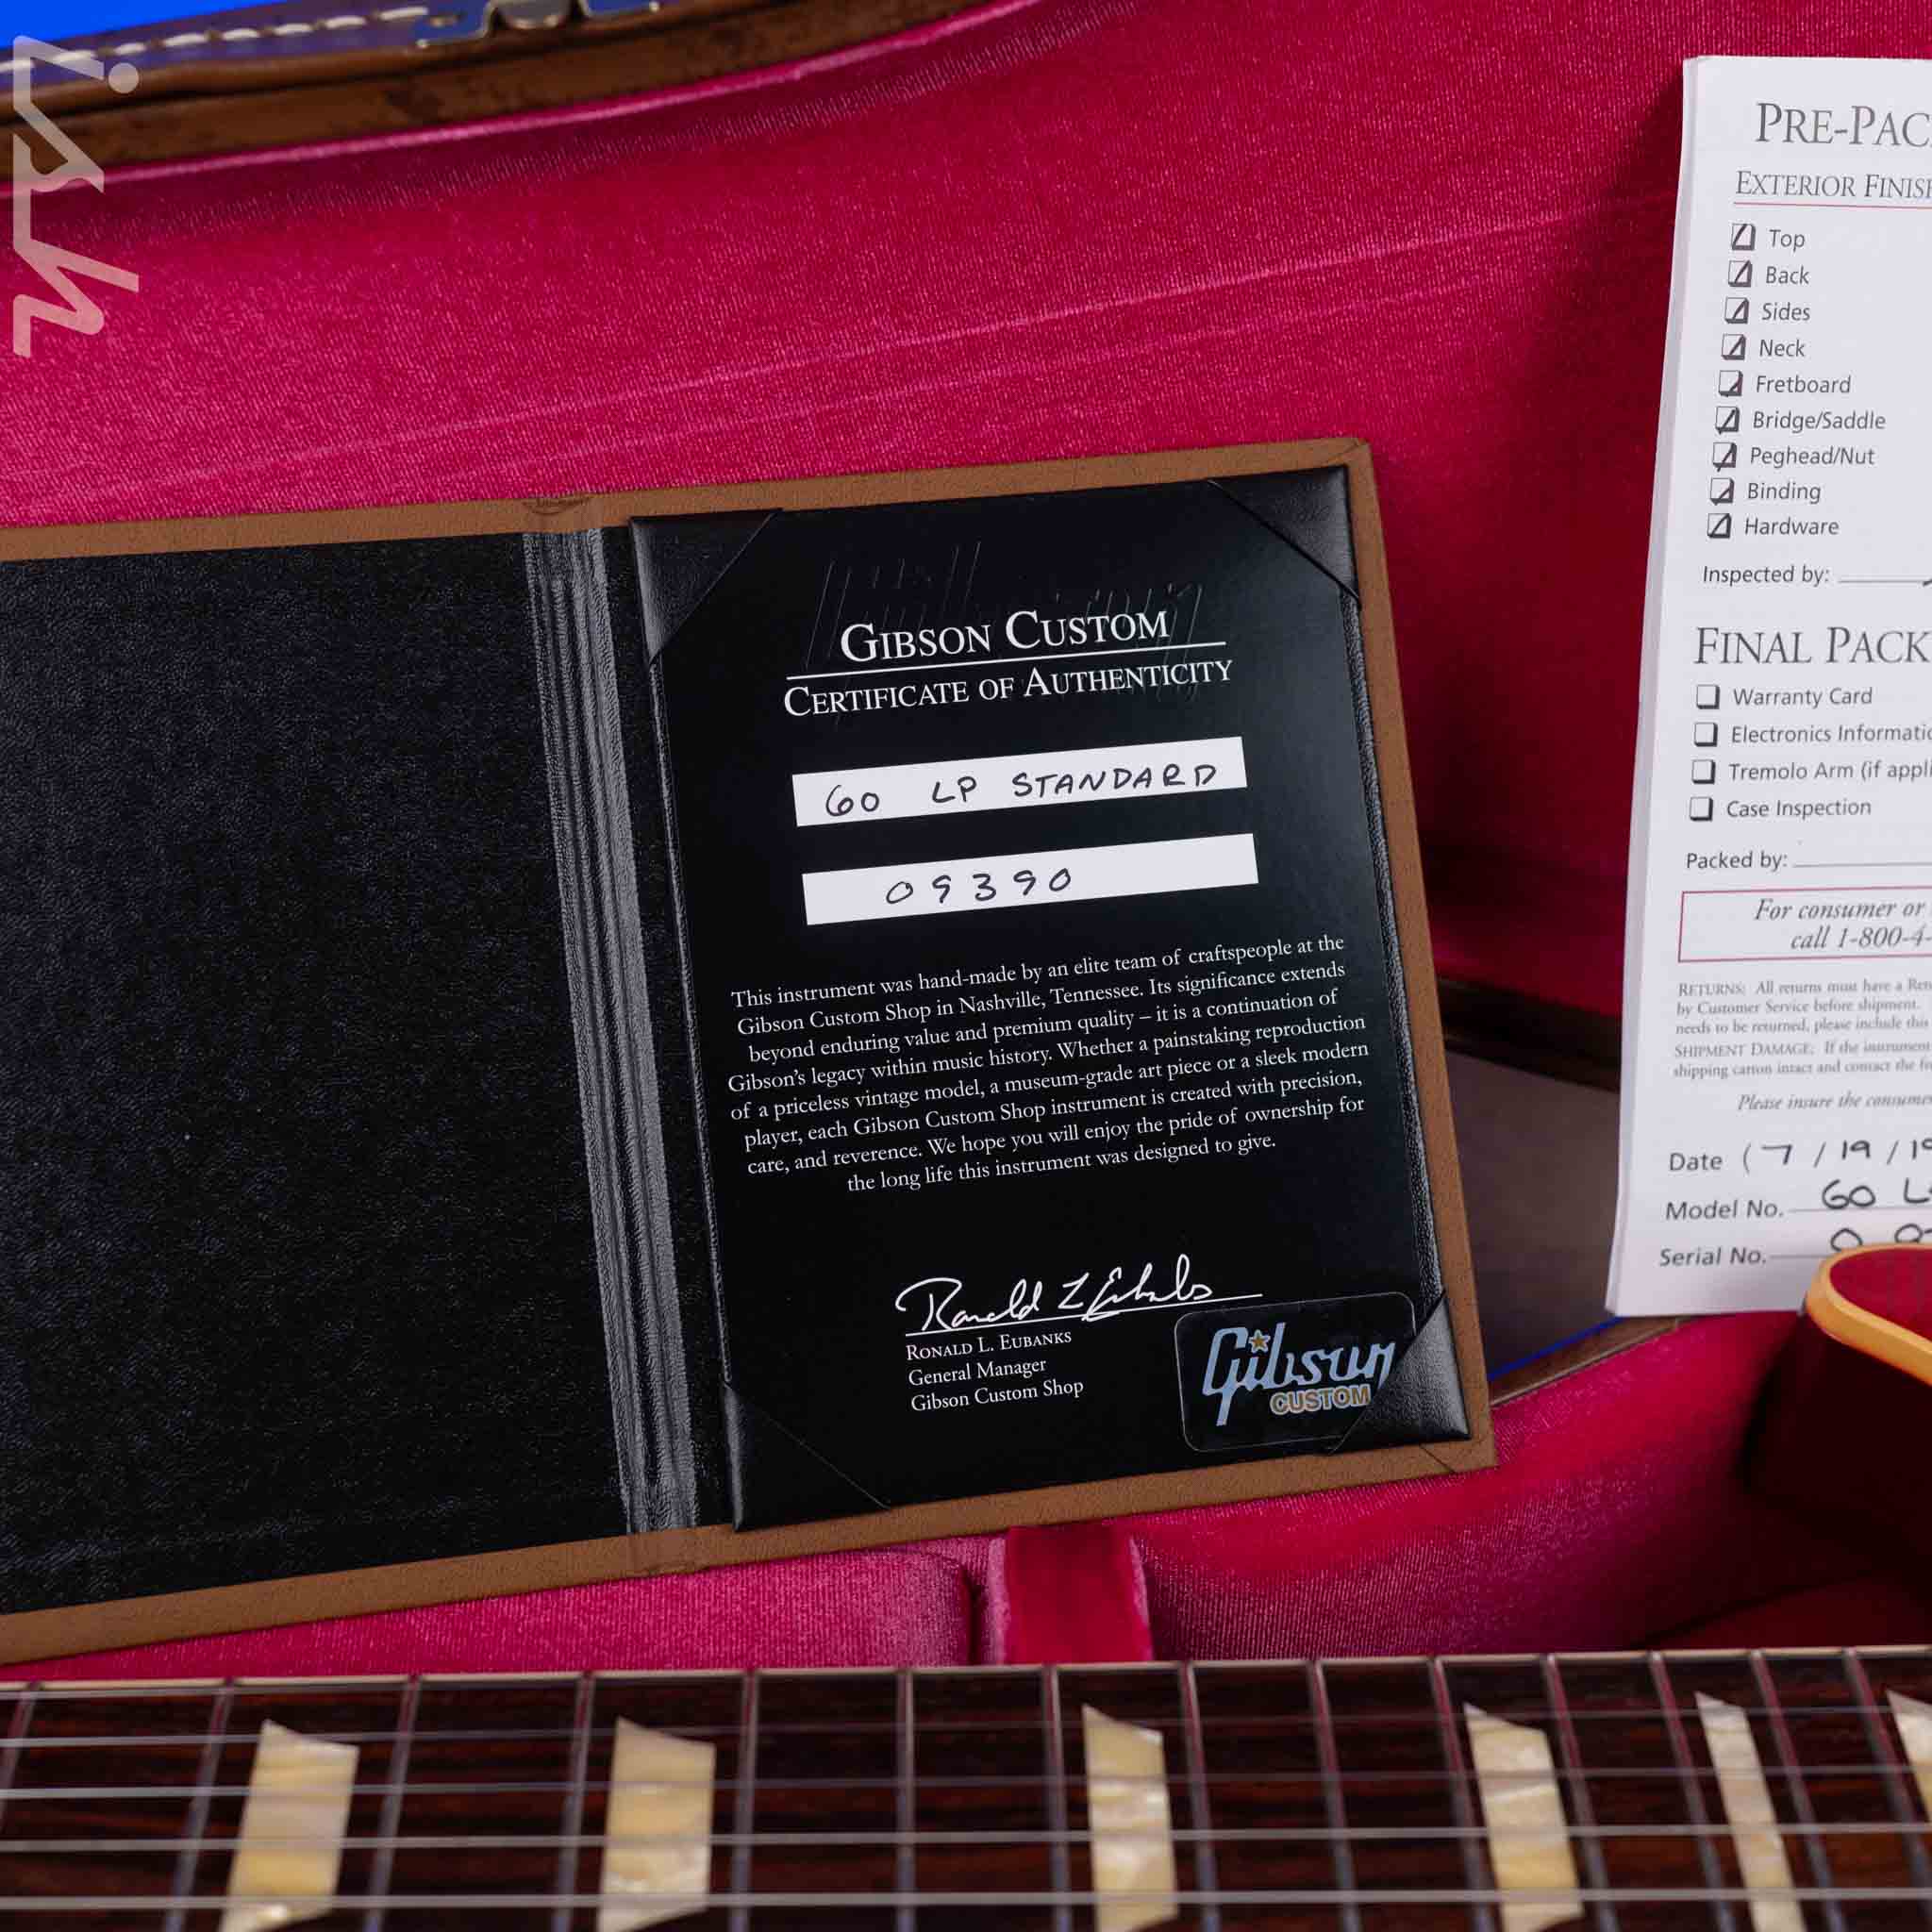 ish
GIBSON CUSTOM
CERTIFICATE OF AUTHENTICITY
60 LP STANDARD
09390
This instrument was hand-made by an elite team of craftspeople at the
Gibson Custom Shop in Nashville, Tennessee. Its significance extends
beyond enduring value and premium quality – it is a continuation of
Gibson's legacy within music history. Whether a painstaking reproduction
of a priceless vintage model, a museum-grade art piece or a sleek modern
player, each Gibson Custom Shop instrument is created with precision,
care, and reverence. We hope you will enjoy the pride of ownership for
the long life this instrument was designed to give.
Ronald L Eubanks
RONALD L. EUBANKS
General Manager
Gibson Custom Shop
Gibson
CUSTOM
PRE-PAC
EXTERIOR FINISH
Top
Back
Sides
Neck
Fretboard
Bridge/Saddle
Peghead/Nut
Binding
Hardware
Inspected by:
FINAL PACK
Warranty Card
Electronics Informatio
Tremolo Arm (if appli
Case Inspection
Packed by:
For consumer or
call 1-800-4-
RETURNS: All returns must have a Ret
by Customer Service before shipment.
needs to be returned, please include this
SHIPMENT DAMAGE: If the instrument
shipping carton intact and contact the fr
Please insure the consumer
Date (7 / 19 / 19
Model No. 60 L
Serial No. 0